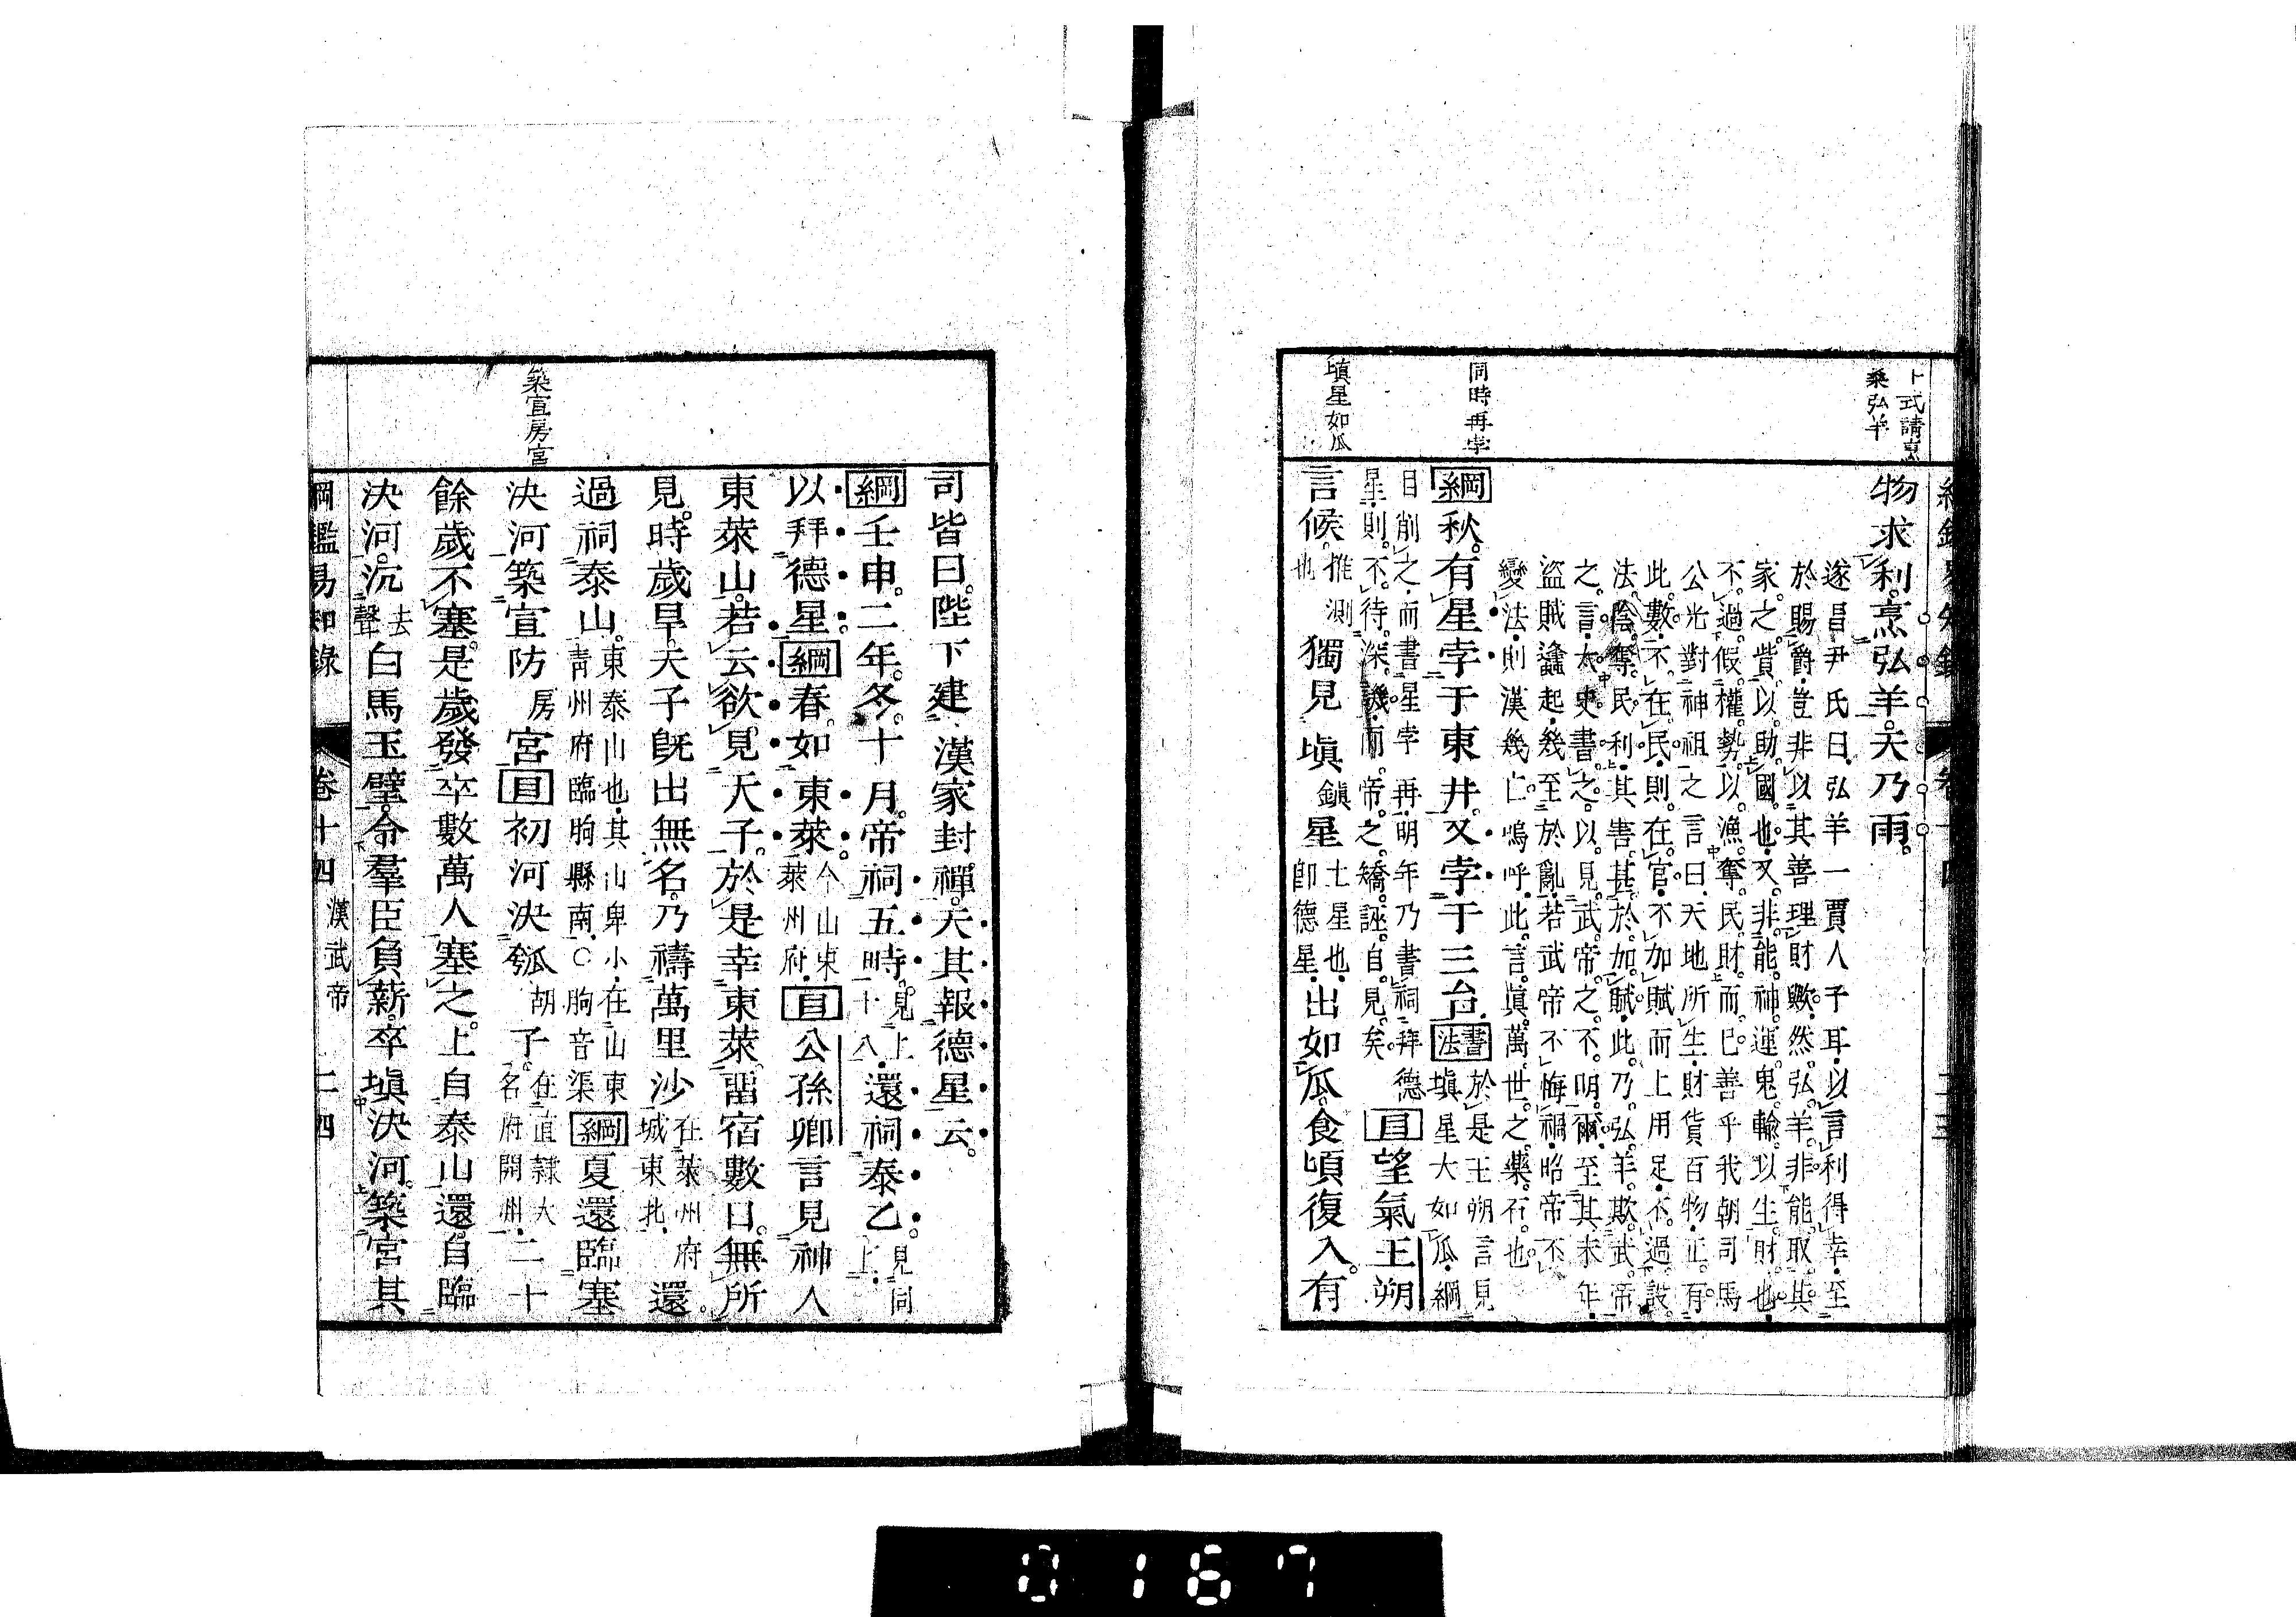 卜式請烹
桑弘羊
物求利烹弘羊天乃雨
遂昌尹氏曰弘羊一賈人子耳以言利得幸至
於賜爵豈非以其善理財歟然弘羊非能取其
家之貲以助國也又非能神運鬼輸以生財也
不過假權勢以漁奪民財而已善乎我朝司馬
公光對神祖之言曰天地所生財貨百物正有
此數不在民則在官不加賦而上用足不過設
法陰奪民利其害甚於加賦此乃弘羊欺武帝
之言太史書之以見武帝之不明爾至其末年
盜賊蠭起幾至於亂若武帝不悔禍昭帝不
變法則漢幾亡嗚呼此言眞萬世之藥石也
同時再孛
綱秋有星孛于東井又孛于三台書法於是王朔言見
塡星大如瓜綱
目削之而書星孛再明年乃書祠拜德
星則不待深譏而帝之矯誣自見矣目望氣王朔
塡星如瓜
言候推測也獨見塡鎭星土星也卽德星出如瓜食頃復入有
司皆曰陛下建漢家封禪天其報德星云
綱壬申二年冬十月帝祠五畤見上十八還祠泰乙見同上
以拜德星綱春如東萊今山東萊州府目公孫卿言見神人
東萊山若云欲見天子於是幸東萊畱宿數日無所
見時歲旱天子旣出無名乃禱萬里沙在萊州府城東北還
過祠泰山東泰山也其山卑小在山東靑州府臨朐縣南○朐音渠綱夏還臨塞
築宣房宮
決河築宣防房宮目初河決瓠胡子在直隸大名府開州二十
餘歲不塞是歲發卒數萬人塞之上自泰山還自臨
決河沉去聲白馬玉璧令羣臣負薪卒塡決河築宮其
綱鑑易知錄 卷十四 漢武帝 二四
0167